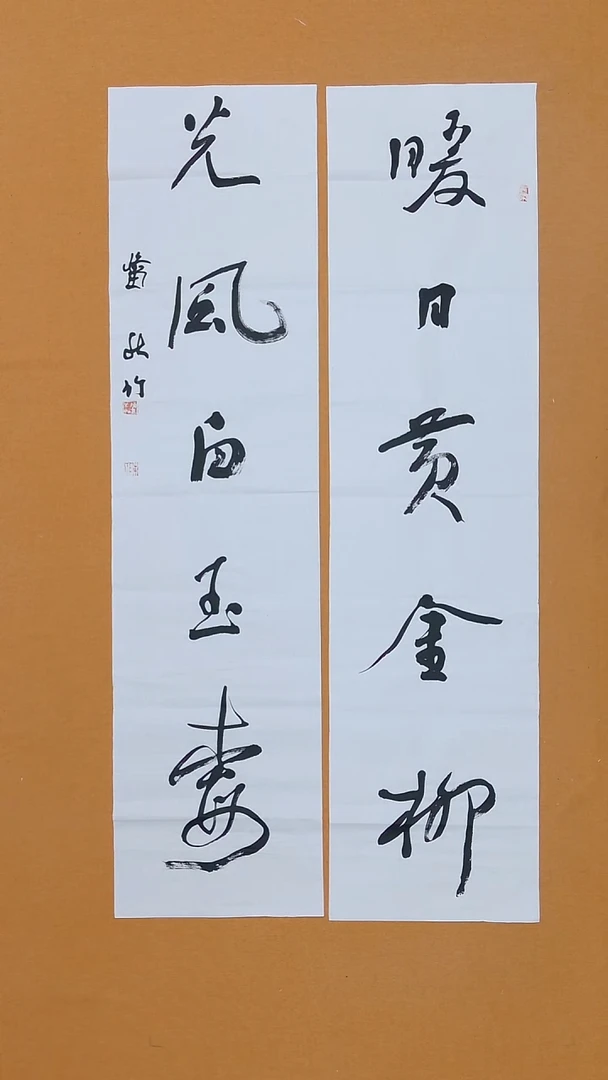 暖日黄金柳
光风白玉梅
竹